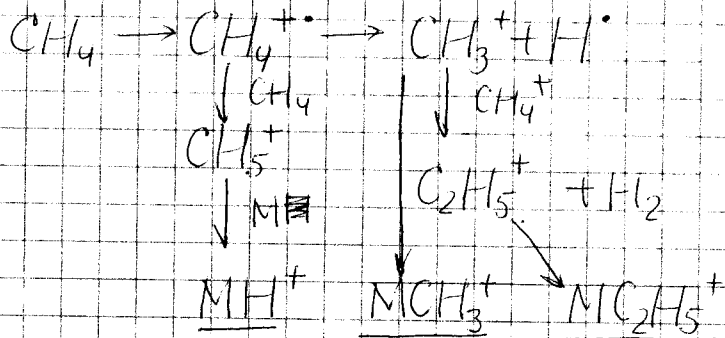 CH₄ → CH₄⁺• → CH₃⁺ + H•
↓ CH₄ ↓ CH₄⁺
CH₅⁺
C₂H₅⁺ + H₂
↓ M
MH⁺ MCH₃⁺ MC₂H₅⁺